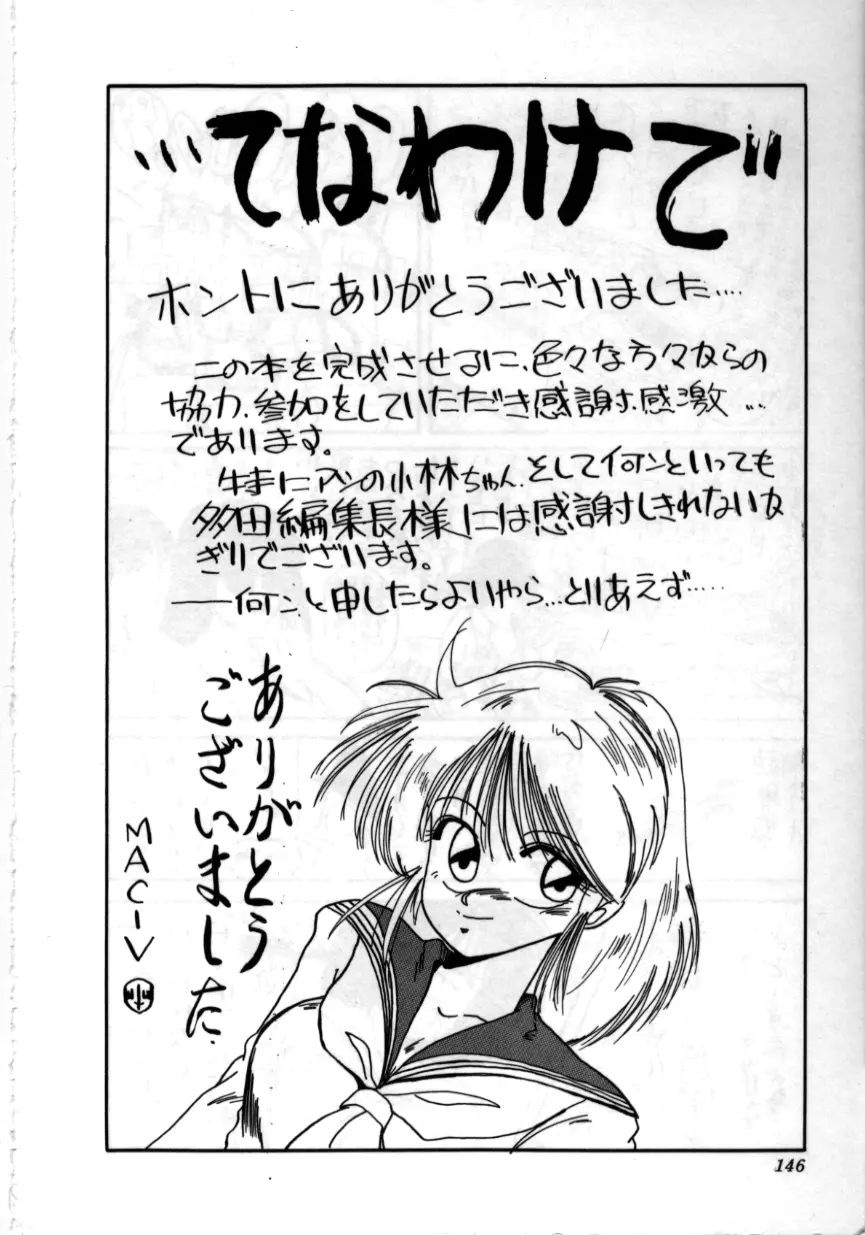 …てなわけで〃
ホントにありがとうございました……
この本を完成させるに、色々な方々からの
協力、参加をしていただき感謝、感激…
であります。
特にアシの小林ちゃん、そして何ンといっても
多田編集長様には感謝しきれないか
ぎりでございます。
──何ンと申したらよいやら…とりあえず……
ありがとう
ございました
MAC-V
146